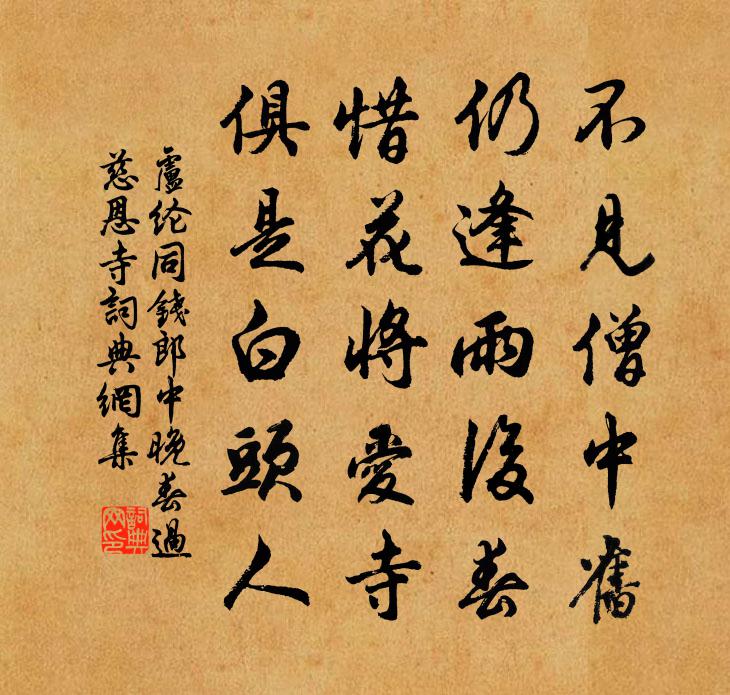 不見僧中舊
仍逢雨後春
惜花將愛寺
俱是白頭人
盧纶同錢郎中晚春過
慈恩寺詞典網集
詞典網